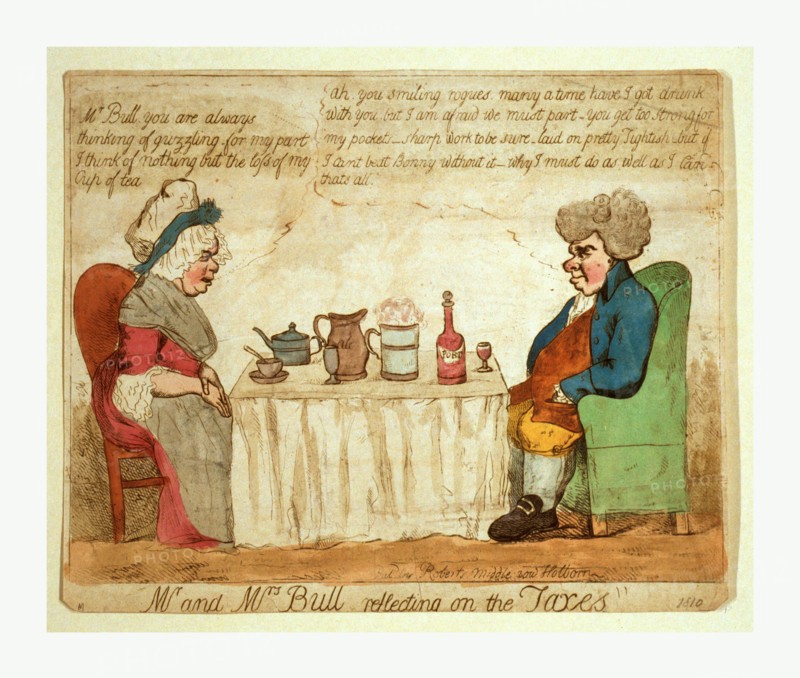 Mr Bull, you are always
thinking of guzzling for my part
I think of nothing but the loss of my
Cup of tea
Ah, you smiling rogues, many a time have I got drunk
with you, but I am afraid we must part - you get too strong for
my pockets - sharp work to be sure, laid on pretty Tightish - but if
I cant beat Bonny without it - why I must do as well as I can -
thats all.
ALE
PORT
Roberts Middle row Holborn
Mr and Mrs Bull reflecting on the Taxes"
1810
PHOTO12
PHOTO12
PHOTO12
PHOTO12